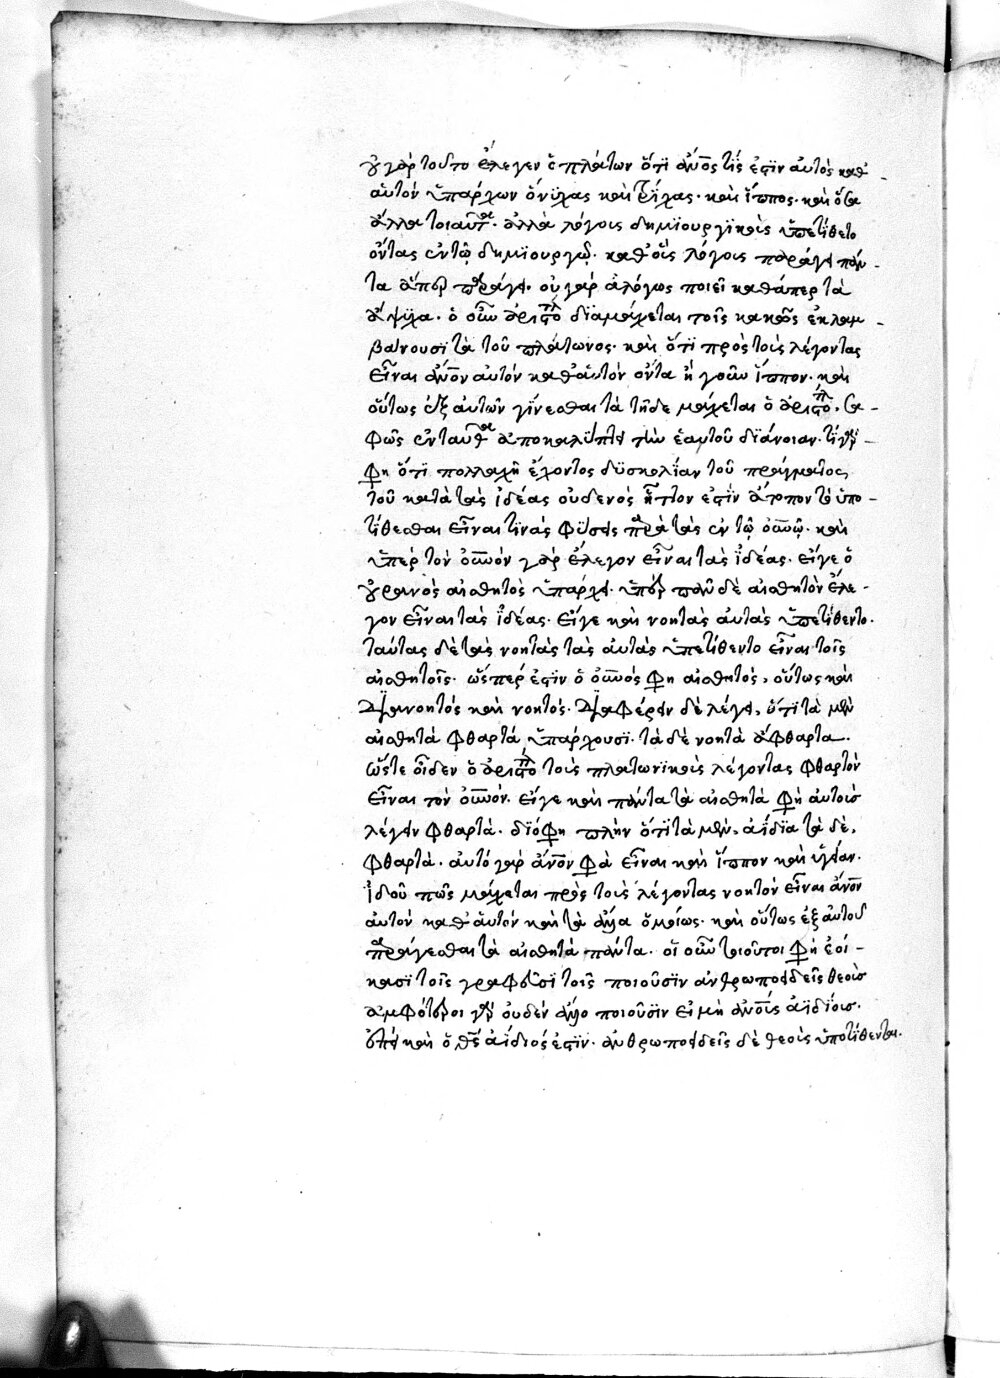 οὐ γὰρ τοῦτο ἔλεγεν ὁ πλάτων ὅτι ἄνος τίς ἐστιν αὐτὸς καθ
αὑτὸν ὑπάρχων ὄνυχας καὶ τρίχας· καὶ ἵππος· καὶ ὅσα
ἄλλα τοιαῦτα· ἀλλὰ λόγοις δημιουργικοῖς ὑπετίθετο
ὄντας ἐν τῶ δημιουργῶ· καθ οὓς λόγους παράγει πάν
τα ἅπερ παράγει· οὐ γὰρ ἀλόγως ποιεῖ καθάπερ τὰ
ἄψυχα· ὁ οὖν ἀριστο διαμάχεται τοῖς κακῶς ἐκλαμ
βάνουσι τὰ τοῦ πλάτωνος· καὶ ὅτι πρὸς τοὺς λέγοντας
εἶναι ἄνον αὐτὸν καθ αὑτὸν ὄντα ἢ γοῦν ἵππον· καὶ
οὕτως ἐξ αὐτῶν γίνεσθαι τὰ τῆδε μάχεται ὁ ἀριστο· σα
φῶς ἐνταῦθα ἀποκαλύπτει τὴν ἑαυτοῦ διάνοιαν·
φη ὅτι πολλαχῆ ἔχοντος δυσκολίαν τοῦ πράγματος
τοῦ κατὰ τὰς ἰδέας οὐδενὸς ἧττον ἐστὶν ἄτοπον τὸ ὑπο
τίθεσθαι εἶναι τινὰς φύσεις παρὰ τὰς ἐν τῶ οὐνῶ· καὶ
ὑπὲρ τὸν οὐνὸν γὰρ ἔλεγον εἶναι τὰς ἰδέας· εἴγε ὁ
οὐρανὸς αἰσθητὸς ὑπάρχει· ὑπὲρ πᾶν δὲ αἰσθητὸν ἔλε
γον εἶναι τὰς ἰδέας· εἴγε καὶ νοητὰς αὐτὰς ὑπετίθεντο·
ταύτας δὲ τὰς νοητὰς τὰς αὐτὰς ὑπετίθεντο εἶναι τοῖς
αἰσθητοῖς· ὥσπερ ἐστὶν ὁ οὐνὸς φη αἰσθητὸς, οὕτως καὶ
διανοητὸς καὶ νοητός· διαφέρειν δὲ λέγει, ὅτι τὰ μὲν
αἰσθητὰ φθαρτὰ ὑπάρχουσι· τὰ δὲ νοητὰ ἄφθαρτα·
ὥστε οἶδεν ὁ ἀριστο τοὺς πλατωνικοὺς λέγοντας φθαρτὸν
εἶναι τὸν οὐνόν· εἴγε καὶ πάντα τὰ αἰσθητὰ φη αὐτοὺς
λέγειν φθαρτά· διό φη πλὴν ὅτι τὰ μὲν, ἀΐδια τὰ δὲ,
φθαρτά· αὐτὸ γὰρ ἄνον φα εἶναι καὶ ἵππον καὶ ὑγείαν·
ἰδοῦ πῶς μάχεται πρὸς τοὺς λέγοντας νοητὸν εἶναι ἄνον
αὐτὸν καθ αὑτὸν καὶ τὰ ἄλλα ὁμοίως· καὶ οὕτως ἐξ αὐτοῦ
παράγεσθαι τὰ αἰσθητὰ πάντα· οἱ οὖν τοιοῦτοι φη ἐοί
κασι τοῖς γραφεῦσι τοῖς ποιοῦσιν ἀνθρωποειδεῖς θεοὺς
ἀμφότεροι γὰρ οὐδὲν ἄλλο ποιοῦσιν εἰ μὴ ἄνους ἀϊδίους·
ἐπεὶ καὶ ὁ θς ἀίδιός ἐστιν· ἀνθρωποειδεῖς δὲ θεοὺς ὑποτίθενται·